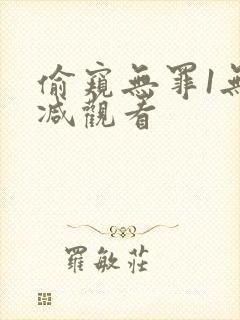 偷窺無罪1無
減觀看
羅敏莊